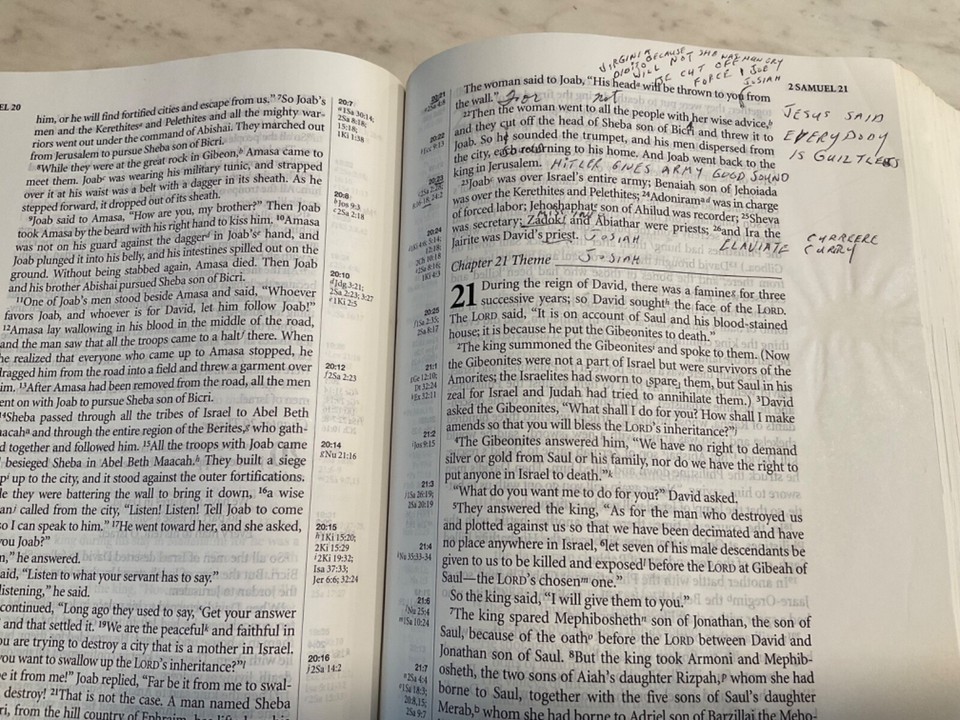 EL 20
him, or he will find fortified cities and escape from us." 7So Joab's
men and the Kerethites and Pelethites and all the mighty war-
riors went out under the command of Abishai. They marched out
from Jerusalem to pursue Sheba son of Bicri.
8While they were at the great rock in Gibeon, Amasa came to
meet them. Joab was wearing his military tunic, and strapped
over it at his waist was a belt with a dagger in its sheath. As he
stepped forward, it dropped out of its sheath.
9Joab said to Amasa, "How are you, my brother?" Then Joab
took Amasa by the beard with his right hand to kiss him. 10Amasa
was not on his guard against the dagger in Joab's hand, and
Joab plunged it into his belly, and his intestines spilled out on the
ground. Without being stabbed again, Amasa died. Then Joab
and his brother Abishai pursued Sheba son of Bicri.
11One of Joab's men stood beside Amasa and said, "Whoever
favors Joab, and whoever is for David, let him follow Joab!"
12Amasa lay wallowing in his blood in the middle of the road,
and the man saw that all the troops came to a halt there. When
he realized that everyone who came up to Amasa stopped, he
dragged him from the road into a field and threw a garment over
im. 13After Amasa had been removed from the road, all the men
ent on with Joab to pursue Sheba son of Bicri.
14Sheba passed through all the tribes of Israel to Abel Beth
aacah and through the entire region of the Berites, who gath-
d together and followed him. 15All the troops with Joab came
besieged Sheba in Abel Beth Maacah. They built a siege
up to the city, and it stood against the outer fortifications.
le they were battering the wall to bring it down, 16a wise
an called from the city, "Listen! Listen! Tell Joab to come
so I can speak to him." 17He went toward her, and she asked,
you Joab?"
," he answered.
aid, "Listen to what your servant has to say."
listening," he said.
continued, "Long ago they used to say, 'Get your answer
and that settled it. 19We are the peaceful and faithful in
ou are trying to destroy a city that is a mother in Israel.
you want to swallow up the LORD's inheritance?"
be it from me!" Joab replied, "Far be it from me to swal-
destroy! 21That is not the case. A man named Sheba
ri, from the hill country of Ephraim, has
20:7
1Sa 30:14;
2Sa 8:18;
15:18;
1Ki 1:38
20:8
Jos 9:3
2Sa 2:18
20:10
Jdg 3:21;
2Sa 2:23; 3:27
1Ki 2:5
20:12
2Sa 2:23
20:14
Nu 21:16
20:15
1Ki 15:20;
2Ki 15:29
2Ki 19:32;
Isa 37:33;
Jer 6:6; 32:24
20:16
2Sa 14:2
20:21
2Sa 4:8
20:22
Ecc 9:13
20:23
20:24
20:25
1Sa 2:35;
2Sa 8:17
21:1
Ge 12:10;
Dt 32:24
Ex 32:11
21:2
Jos 9:15
21:3
1Sa 26:19;
2Sa 20:19
21:4
Nu 35:33-34
21:6
Nu 25:4
1Sa 10:24
21:7
2Sa 4:4
1Sa 18:3;
20:8,15;
2Sa 9:7
2 SAMUEL 21
VIRGINIA BECAUSE SHE WAS HUNGRY
WILL NOT BE CUT OFF
FORCE JOE
JOSIAH
The woman said to Joab, "His head will be thrown to you from
the wall."
not
22Then the woman went to all the people with her wise advice,
and they cut off the head of Sheba son of Bicri and threw it to
Joab. So he sounded the trumpet, and his men dispersed from
the city, each returning to his home. And Joab went back to the
king in Jerusalem. HITLER GIVES ARMY GUGD SOUND
23Joab was over Israel's entire army; Benaiah son of Jehoiada
was over the Kerethites and Pelethites; 24Adoniram was in charge
of forced labor; Jehoshaphat son of Ahilud was recorder; 25Sheva
was secretary; Zadok and Abiathar were priests; 26and Ira the
Jairite was David's priest. JOSIAH
JESUS SAID
EVERYBODY
IS GUILTLESS
CURRERE
CURRY
Chapter 21 Theme JOSIAH
21 During the reign of David, there was a famine for three
successive years; so David sought the face of the LORD.
The LORD said, "It is on account of Saul and his blood-stained
house; it is because he put the Gibeonites to death."
2The king summoned the Gibeonites and spoke to them. (Now
the Gibeonites were not a part of Israel but were survivors of the
Amorites; the Israelites had sworn to spare them, but Saul in his
zeal for Israel and Judah had tried to annihilate them.) 3David
asked the Gibeonites, "What shall I do for you? How shall I make
amends so that you will bless the LORD's inheritance?"
4The Gibeonites answered him, "We have no right to demand
silver or gold from Saul or his family, nor do we have the right to
put anyone in Israel to death."
"What do you want me to do for you?" David asked.
5They answered the king, "As for the man who destroyed us
and plotted against us so that we have been decimated and have
no place anywhere in Israel, 6let seven of his male descendants be
given to us to be killed and exposed before the LORD at Gibeah of
Saul—the LORD's chosen one."
So the king said, "I will give them to you."
7The king spared Mephibosheth son of Jonathan, the son of
Saul, because of the oath before the LORD between David and
Jonathan son of Saul. 8But the king took Armoni and Mephib-
osheth, the two sons of Aiah's daughter Rizpah, whom she had
borne to Saul, together with the five sons of Saul's daughter
Merab, whom she had borne to Adriel son of Barzillai the Meho-